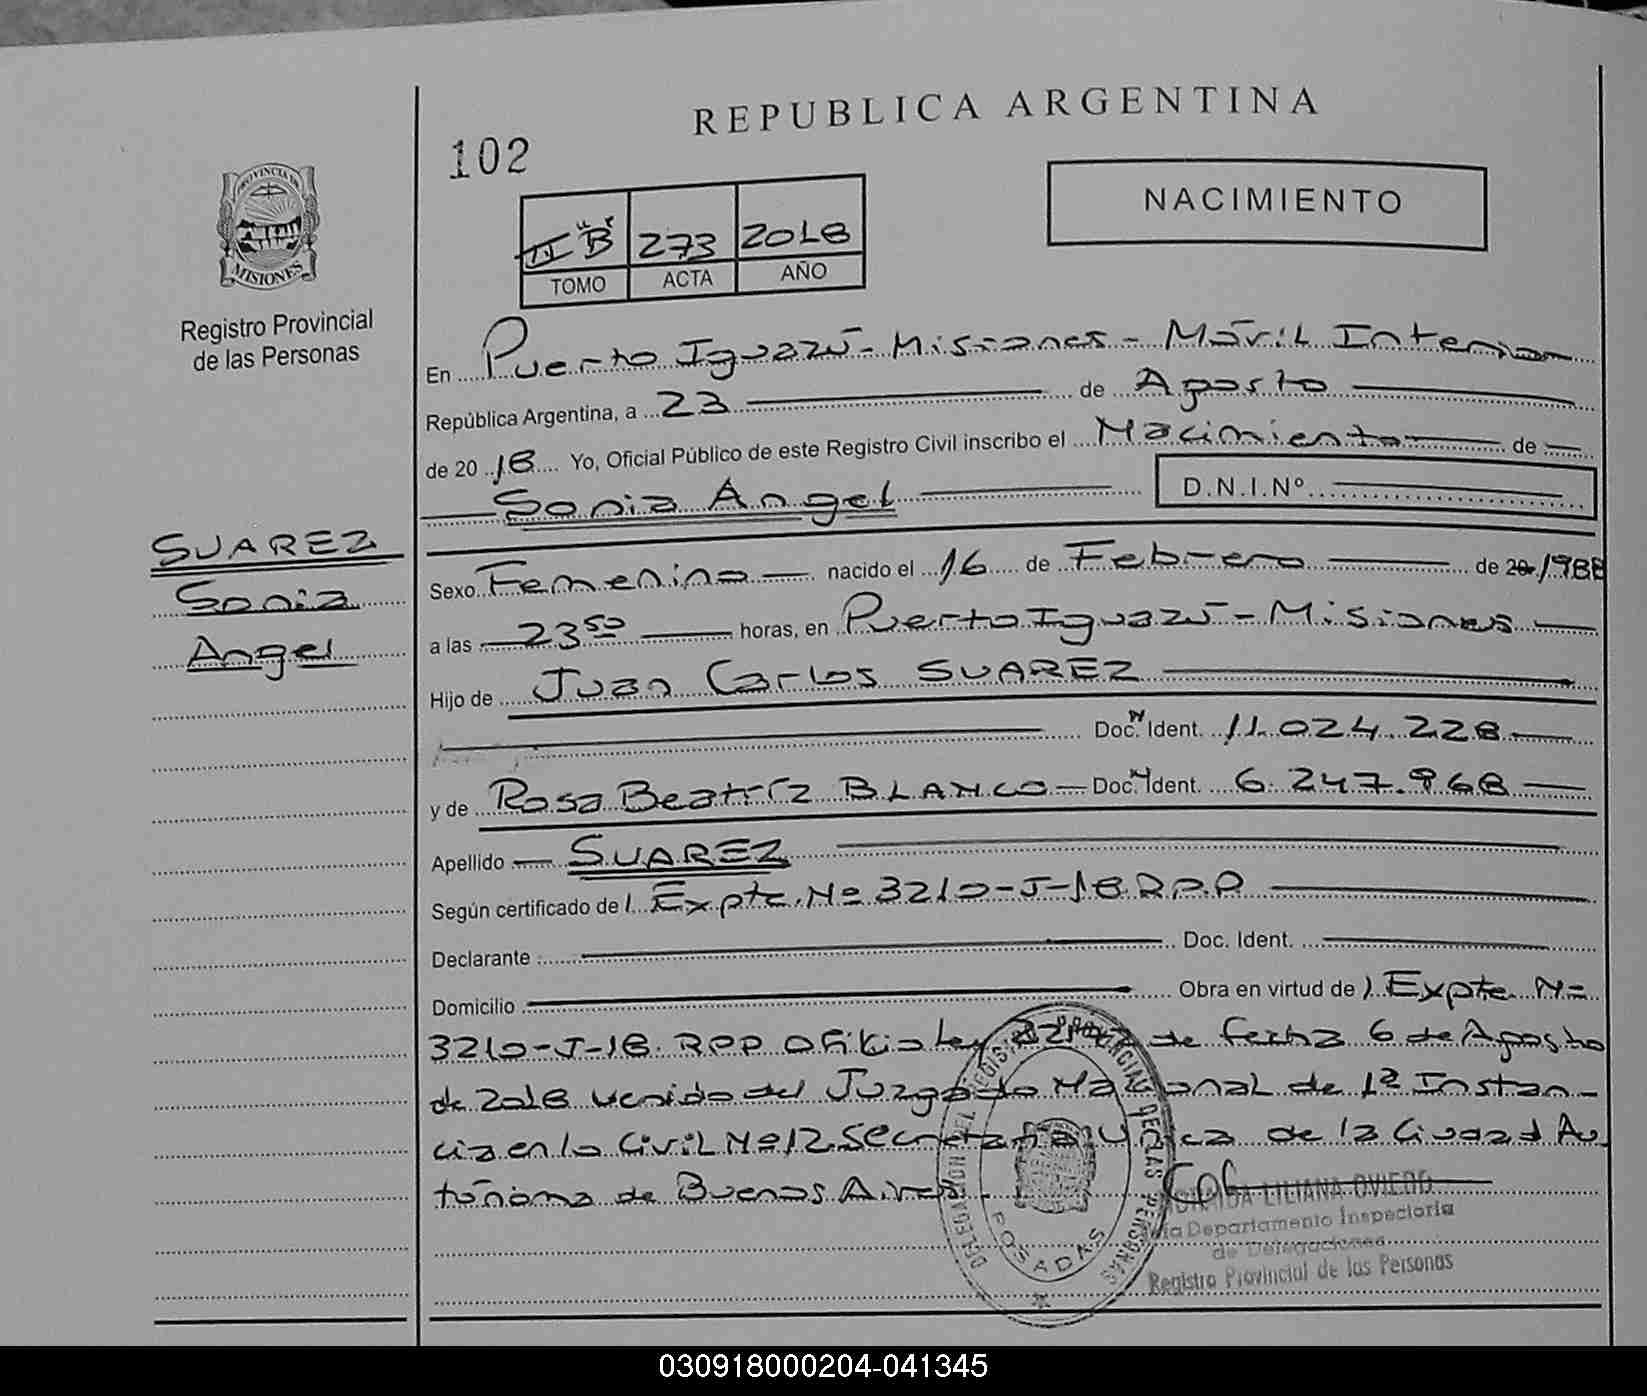 REPUBLICA ARGENTINA
102
NACIMIENTO
"B" 273 2018
TOMO ACTA AÑO
PROVINCIA DE
MISIONES
Registro Provincial
de las Personas
En Puerto Iguazú - Misiones - Móvil Interior
República Argentina, a 23 de Agosto
de 20 18 Yo, Oficial Público de este Registro Civil inscribo el Nacimiento de
Sonia Angel D.N.I.Nº
SUAREZ
Sonia
Angel
Sexo Femenino nacido el 16 de Febrero de 20 1988
a las 23 50 horas, en Puerto Iguazú - Misiones
Hijo de Juan Carlos SUAREZ
Doc. N Ident. 11.024.228
y de Rosa Beatríz BLANCO Doc. N Ident. 6.247.968
Apellido SUAREZ
Según certificado de Expte. Nº 3210-J-18 R.P.P
Declarante Doc. Ident.
Domicilio Obra en virtud de Expte Nº
3210-J-18. RPP Oficio Ley de fecha 6 de Agosto
de 2018 venido del Juzgado Nacional de 1ª Instan-
cia en lo Civil Nº 12 Secretaría Unica de la Ciudad Au
tónoma de Buenos Aires.
REGISTRO PROVINCIAL DE LAS PERSONAS
POSADAS
LILIANA OVIEDO
Departamento Inspectoria
de Delegaciones
Registro Provincial de las Personas
030918000204-041345